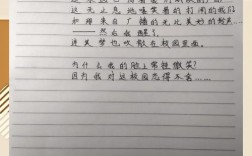 这无止息地嬉笑着的打闹的我们
如席来自广播的无比美妙的轻声
———然而我醒了
连美梦也吹散在校园里面
为什么我的脸上常挂微笑?
因为我对这校园恋得不舍……